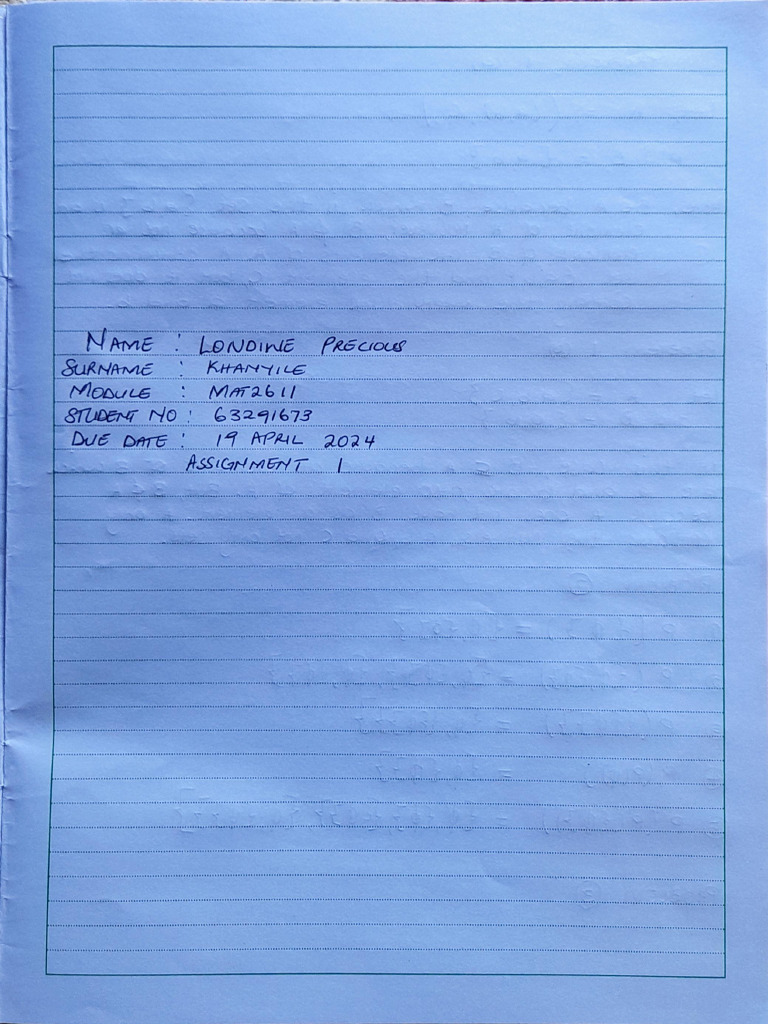 NAME : LONDIWE PRECIOUS
SURNAME : KHANYILE
MODULE : MAT2611
STUDENT NO : 63291673
DUE DATE : 19 APRIL 2024
ASSIGNMENT 1